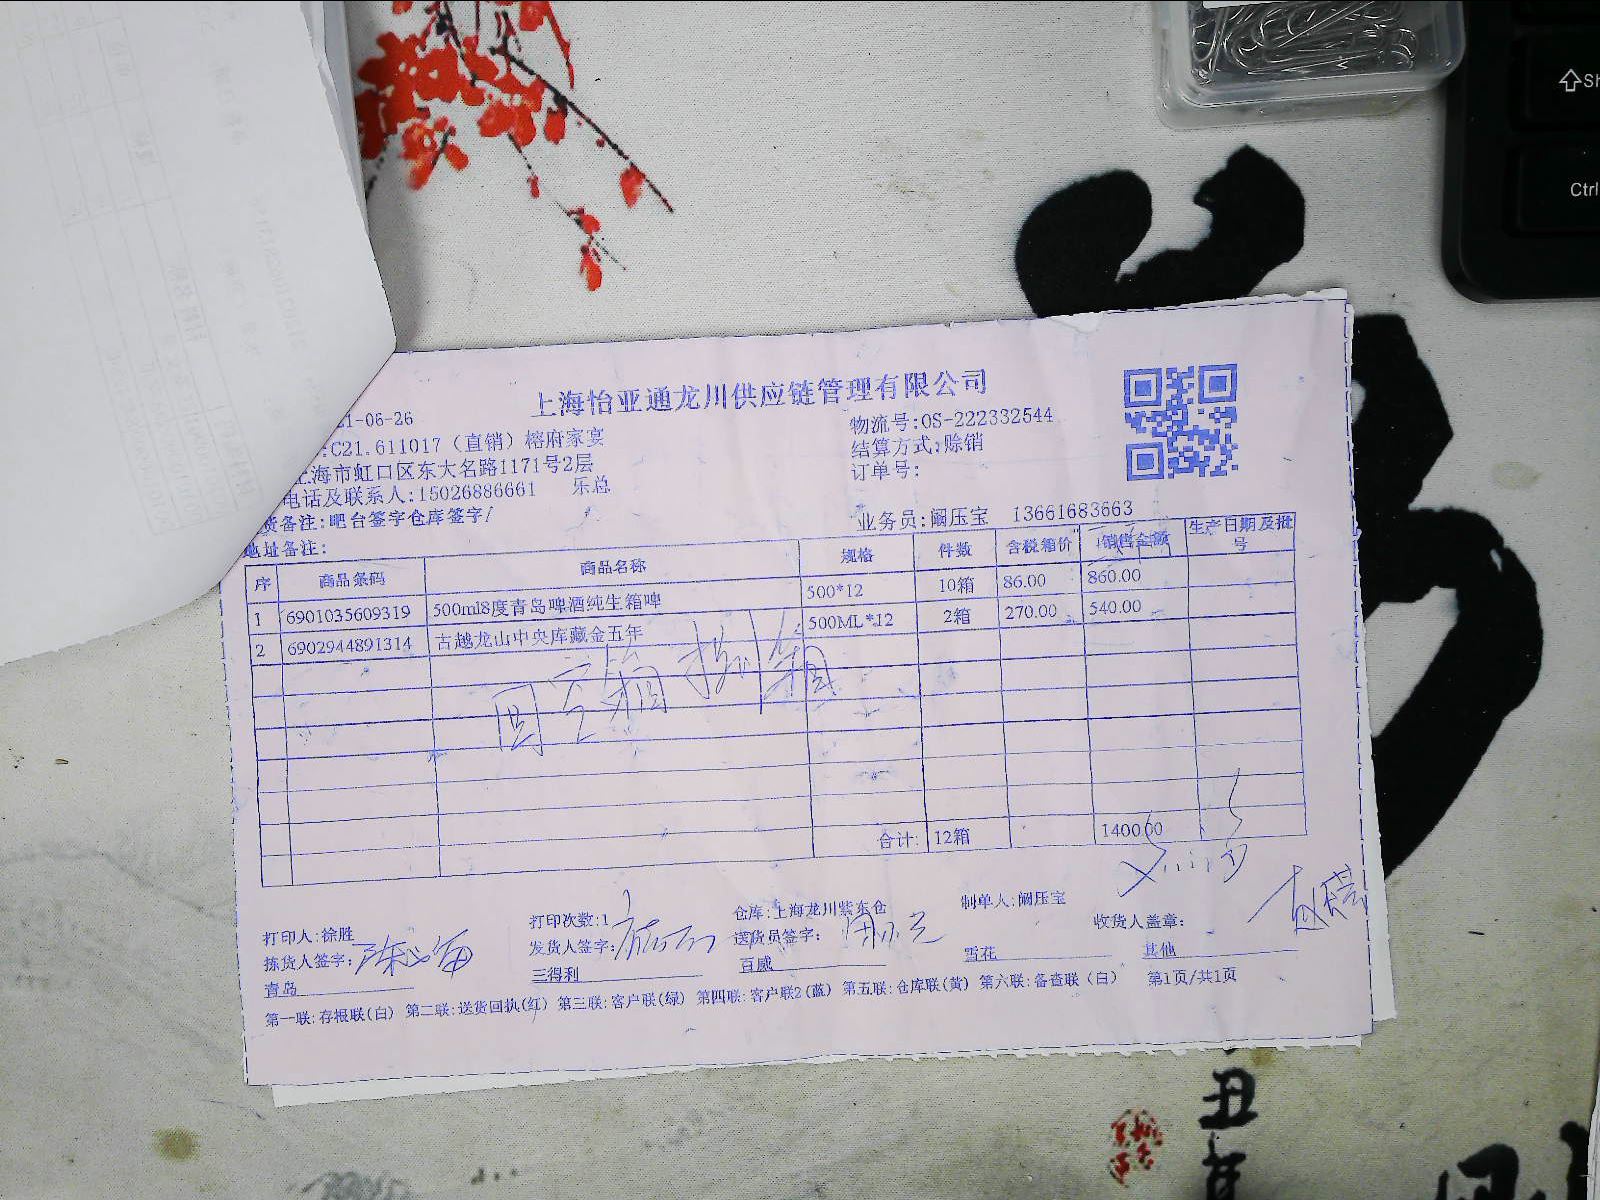 上海怡亚通龙川供应链管理有限公司
1-06-26
物流号:OS-222332544
:C21.611017（直销）榕府家宴
结算方式:赊销
上海市虹口区东大名路1171号2层
订单号:
电话及联系人:15026886661 乐总
货备注:吧台签字仓库签字/
业务员:阚压宝 13661683663
地址备注:
序 商品条码 商品名称 规格 件数 含税箱价 销售金额 生产日期及批号
1 6901035609319 500ml8度青岛啤酒纯生箱啤 500*12 10箱 86.00 860.00
2 6902944891314 古越龙山中央库藏金五年 500ML*12 2箱 270.00 540.00
合计: 12箱 1400.00
打印人:徐胜 打印次数:1 仓库:上海龙川紫东仓 制单人:阚压宝
拣货人签字: 发货人签字: 送货员签字: 收货人盖章:
青岛 三得利 百威 雪花 其他
第一联:存根联(白) 第二联:送货回执(红) 第三联:客户联(绿) 第四联:客户联2(蓝) 第五联:仓库联(黄) 第六联:备查联(白) 第1页/共1页
Ctrl
丑